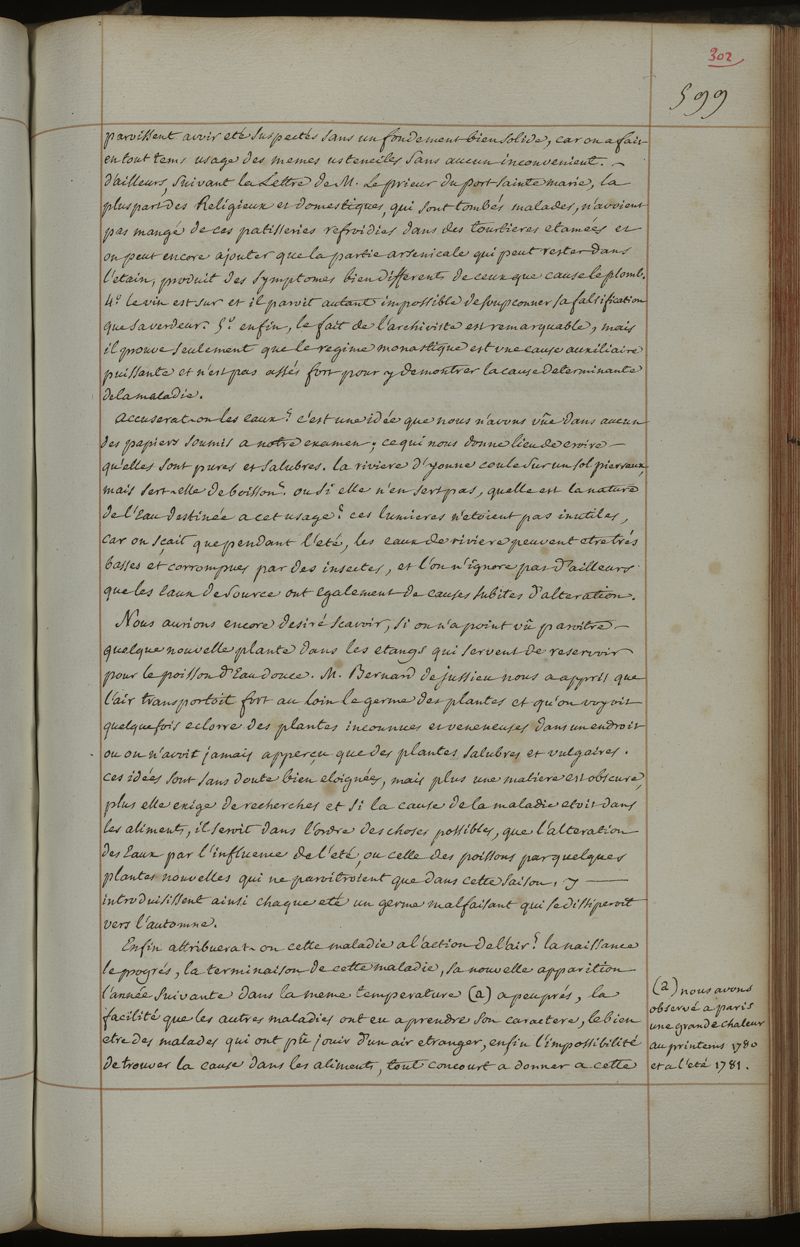 302
599
paroissent avoir eté suspectés sans un fondement bien solide, car on a fait
en tout tems usage des memes ustenciles sans aucun inconvenient. -
d'ailleurs, suivant la Lettre de M. Le prieur du port sainte marie, la
plus part des Religieux et domestiques, qui sont tombés malades, n'avoient
pas mangé de ces patisseries refroidies dans des tourtieres etamées et
on peut encore ajouter que la partie arsenicale qui peut rester dans
l'etain, produit des symptomes bien differents de ceux que cause le plomb.
4.º le vin est sur et il paroit autant impossible de soupconner sa falsification
que sa verdeur. 5.º enfin, le fait de l'archiviste est remarquable, mais
il prouve seulement que le regime monastique est une cause auxiliaire
puissante et n'est pas assés fort pour y demontrer la cause determinante
de la maladie.
accuserat-on les eaux? c'est une idée que nous n'avons vûe dans aucun
des papiers soumis a notre examen; ce qui nous donne lieu de croire -
qu'elles sont pures et salubres. la riviere d'yonne coule sur un sol pierreux,
mais sert-elle de boisson? ou si elle n'en sert pas, quelle est la nature
de l'Eau destinée a cet usage? ces lumieres n'etoient pas inutiles,
car on sçait que pendant l'eté, les eaux de riviere peuvent etre trés
basses et corrompues par des insectes, et l'on n'ignore pas d'ailleurs
que les Eaux de source ont egalement de causes subites d'alteration.
Nous aurions encore desiré scavoir, si on n'a point vû paroitre -
quelque nouvelle plante dans les etangs qui servent de reservoir
pour le poisson d'Eau douce. M. Bernard de jussieu nous a appris que
l'air transportoit fort au loin le germe des plantes et qu'on voyoit
quelquefois eclorre des plantes inconnues et veneneuses dans un endroit
ou on n'avoit jamais apperçu que des plantes salubres et vulgaires.
ces idées sont sans doute bien eloignées, mais plus une matiere est obscure,
plus elle exige de recherches et si la cause de la maladie etoit dans
les aliments, il seroit dans l'ordre des choses possibles, que l'alteration
des Eaux par l'influence de l'eté, ou celle des poissons par quelques
plantes nouvelles qui ne paroitroient que dans cette saison, y -
introduisissent ainsi chaque eté un germe malfaisant qui se dissiperoit
vers l'automne.
Enfin attribuerat-on cette maladie a l'action de l'air? la naissance
le progrés, la terminaison de cette maladie, sa nouvelle apparition
l'année suivante dans la meme temperature (a) a peu prés, la
facilité que les autres maladies ont eu a prendre son caractere, le bien
etre des malades qui ont pû jouir d'un air etranger, enfin l'impossibilité
de trouver la cause dans les aliments, tout concourt a donner a cette
(a) nous avons
observé a paris
une grande chaleur
au printems 1780
et a l'eté 1781.